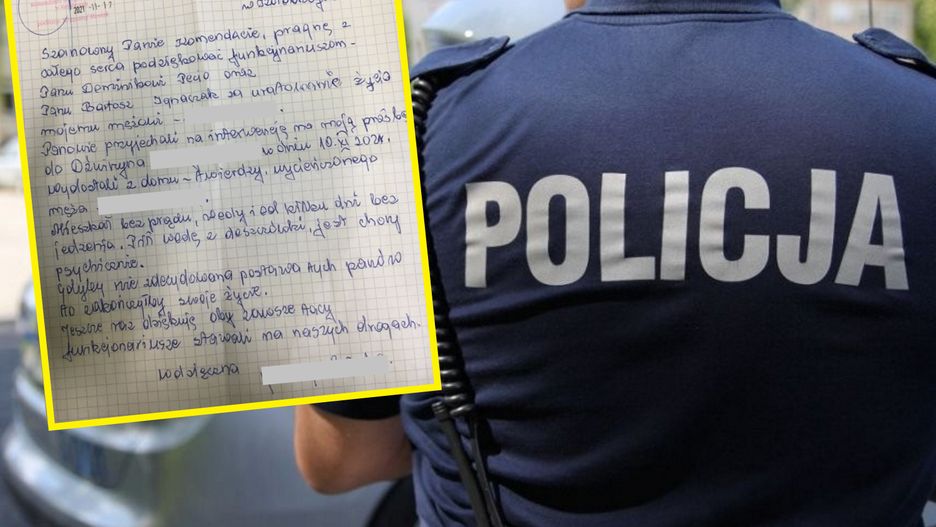 2021 -11- 17
Szanowny Panie Komendacie, pragnę z
całego serca podziękować funkcjonariuszom -
Panu Dominikowi Pejo oraz
Panu Bartosz Ignaczak za uratowanie życia
mojemu mężowi - .
Panowie przyjechali na interwencję na moją prośbę
do Dźwirzyna w dniu 10.XI 2021.
wydostali z domu - twierdzy, wycieńczonego
męża
Mieszkał bez prądu, wody i od kilku dni bez
jedzenia. Pił wodę z deszczówki, jest chory
psychicznie.
Gdyby nie zdecydowana postawa tych panów
to zakończyłby swoje życie.
Jeszcze raz dziękuję oby zawsze tacy
funkcjonariusze stawali na naszych drogach.
wdzięczna
POLICJA